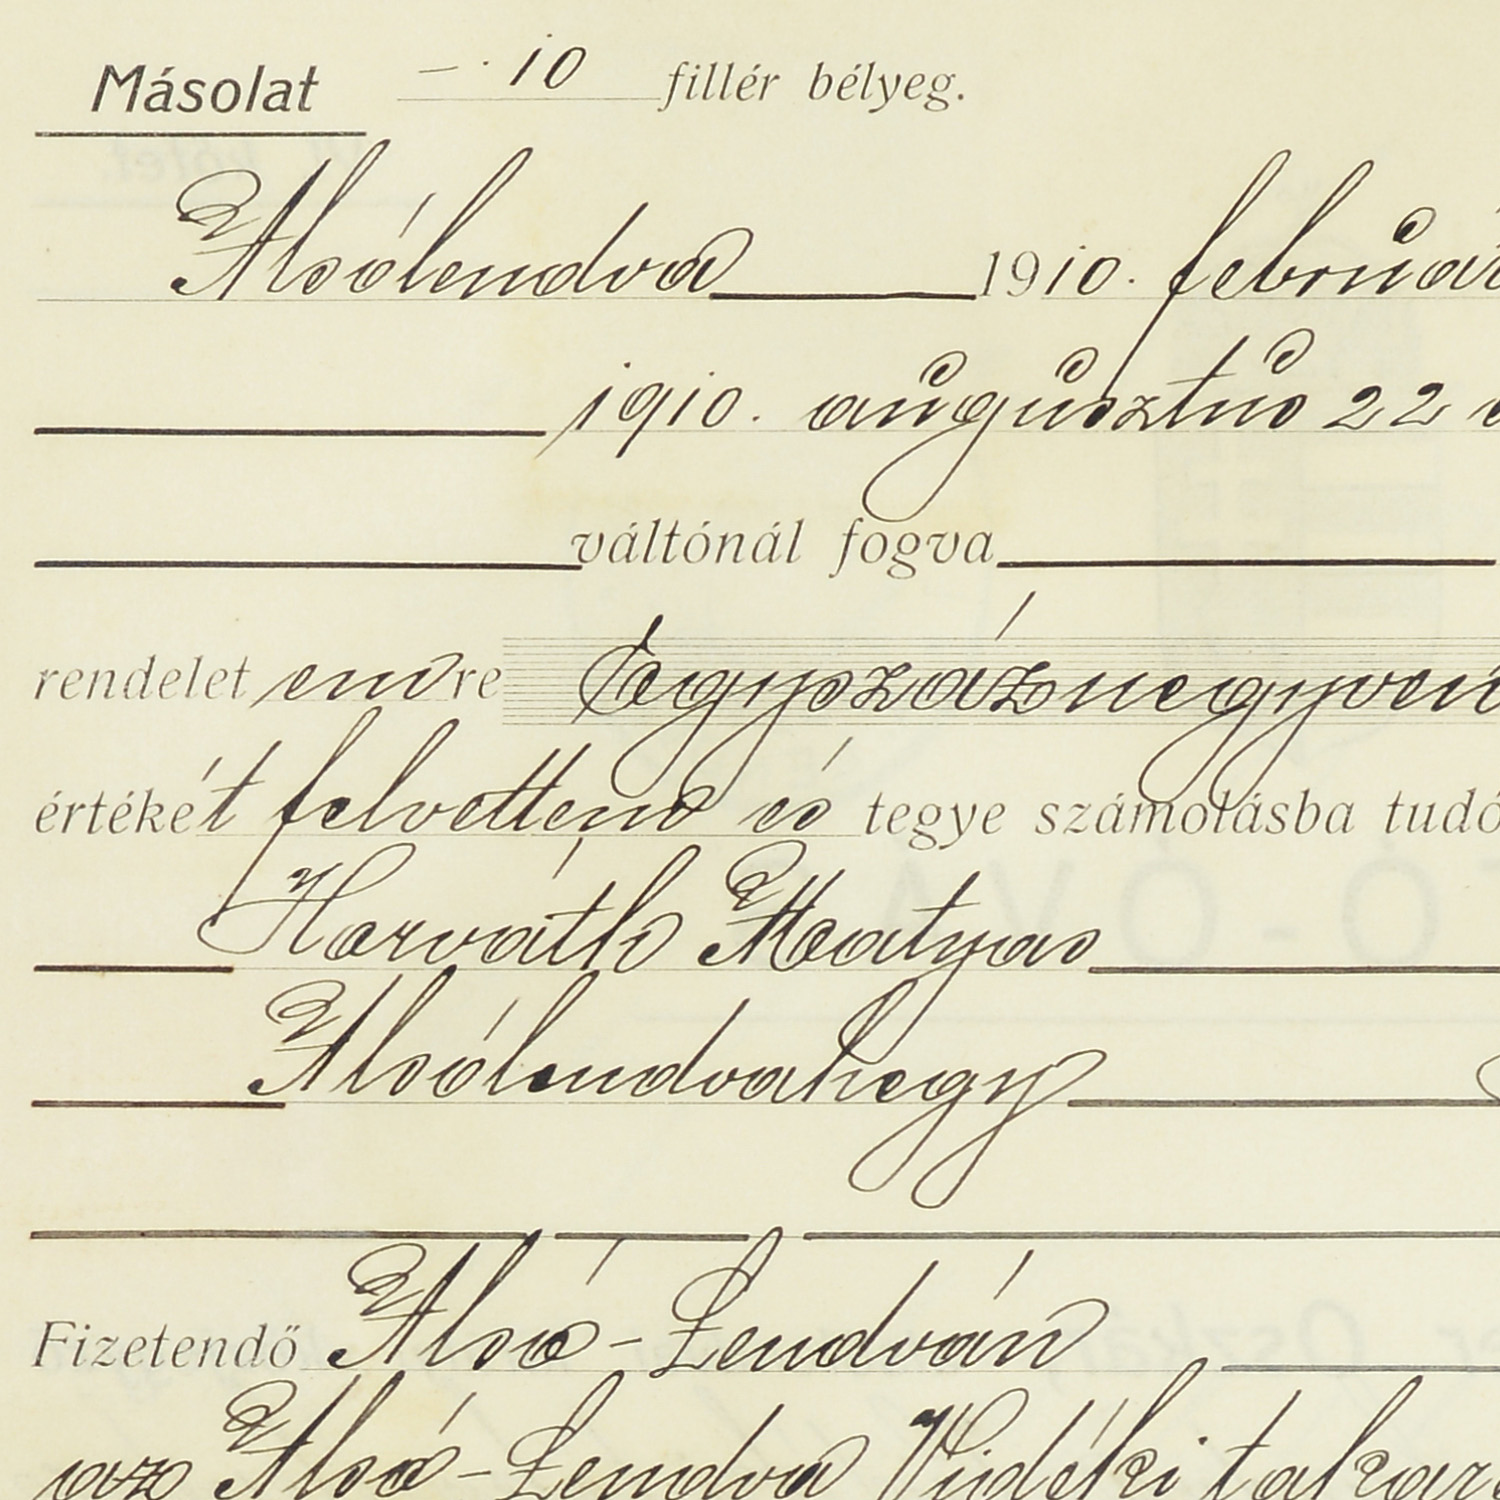 Másolat — 10 fillér bélyeg.
Alsólendva 1910. február
1910. augusztus 22
váltónál fogva
rendelet en re Egyszáznegyven
értékét felvettem és tegye számolásba tudó
Horváth Mátyás
Alsólendvahegy
Fizetendő Alsó-Lendván
az Alsó-Lendva Vidéki takaré